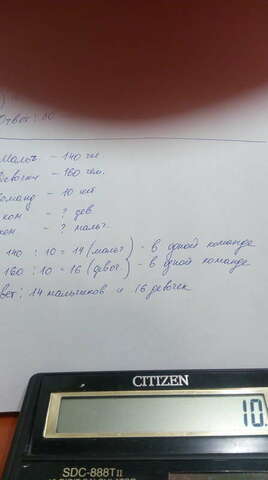 Ответ: 10
Мальч - 140 чел
Девочки - 160 чел.
Команд - 10 шт
ком - ? дев
ком - ? мальч.
140 : 10 = 14 (мальч) - в одной команде
160 : 10 = 16 (девоч) - в одной команде
вет: 14 мальчиков и 16 девочек
CITIZEN
10.
SDC-888TII